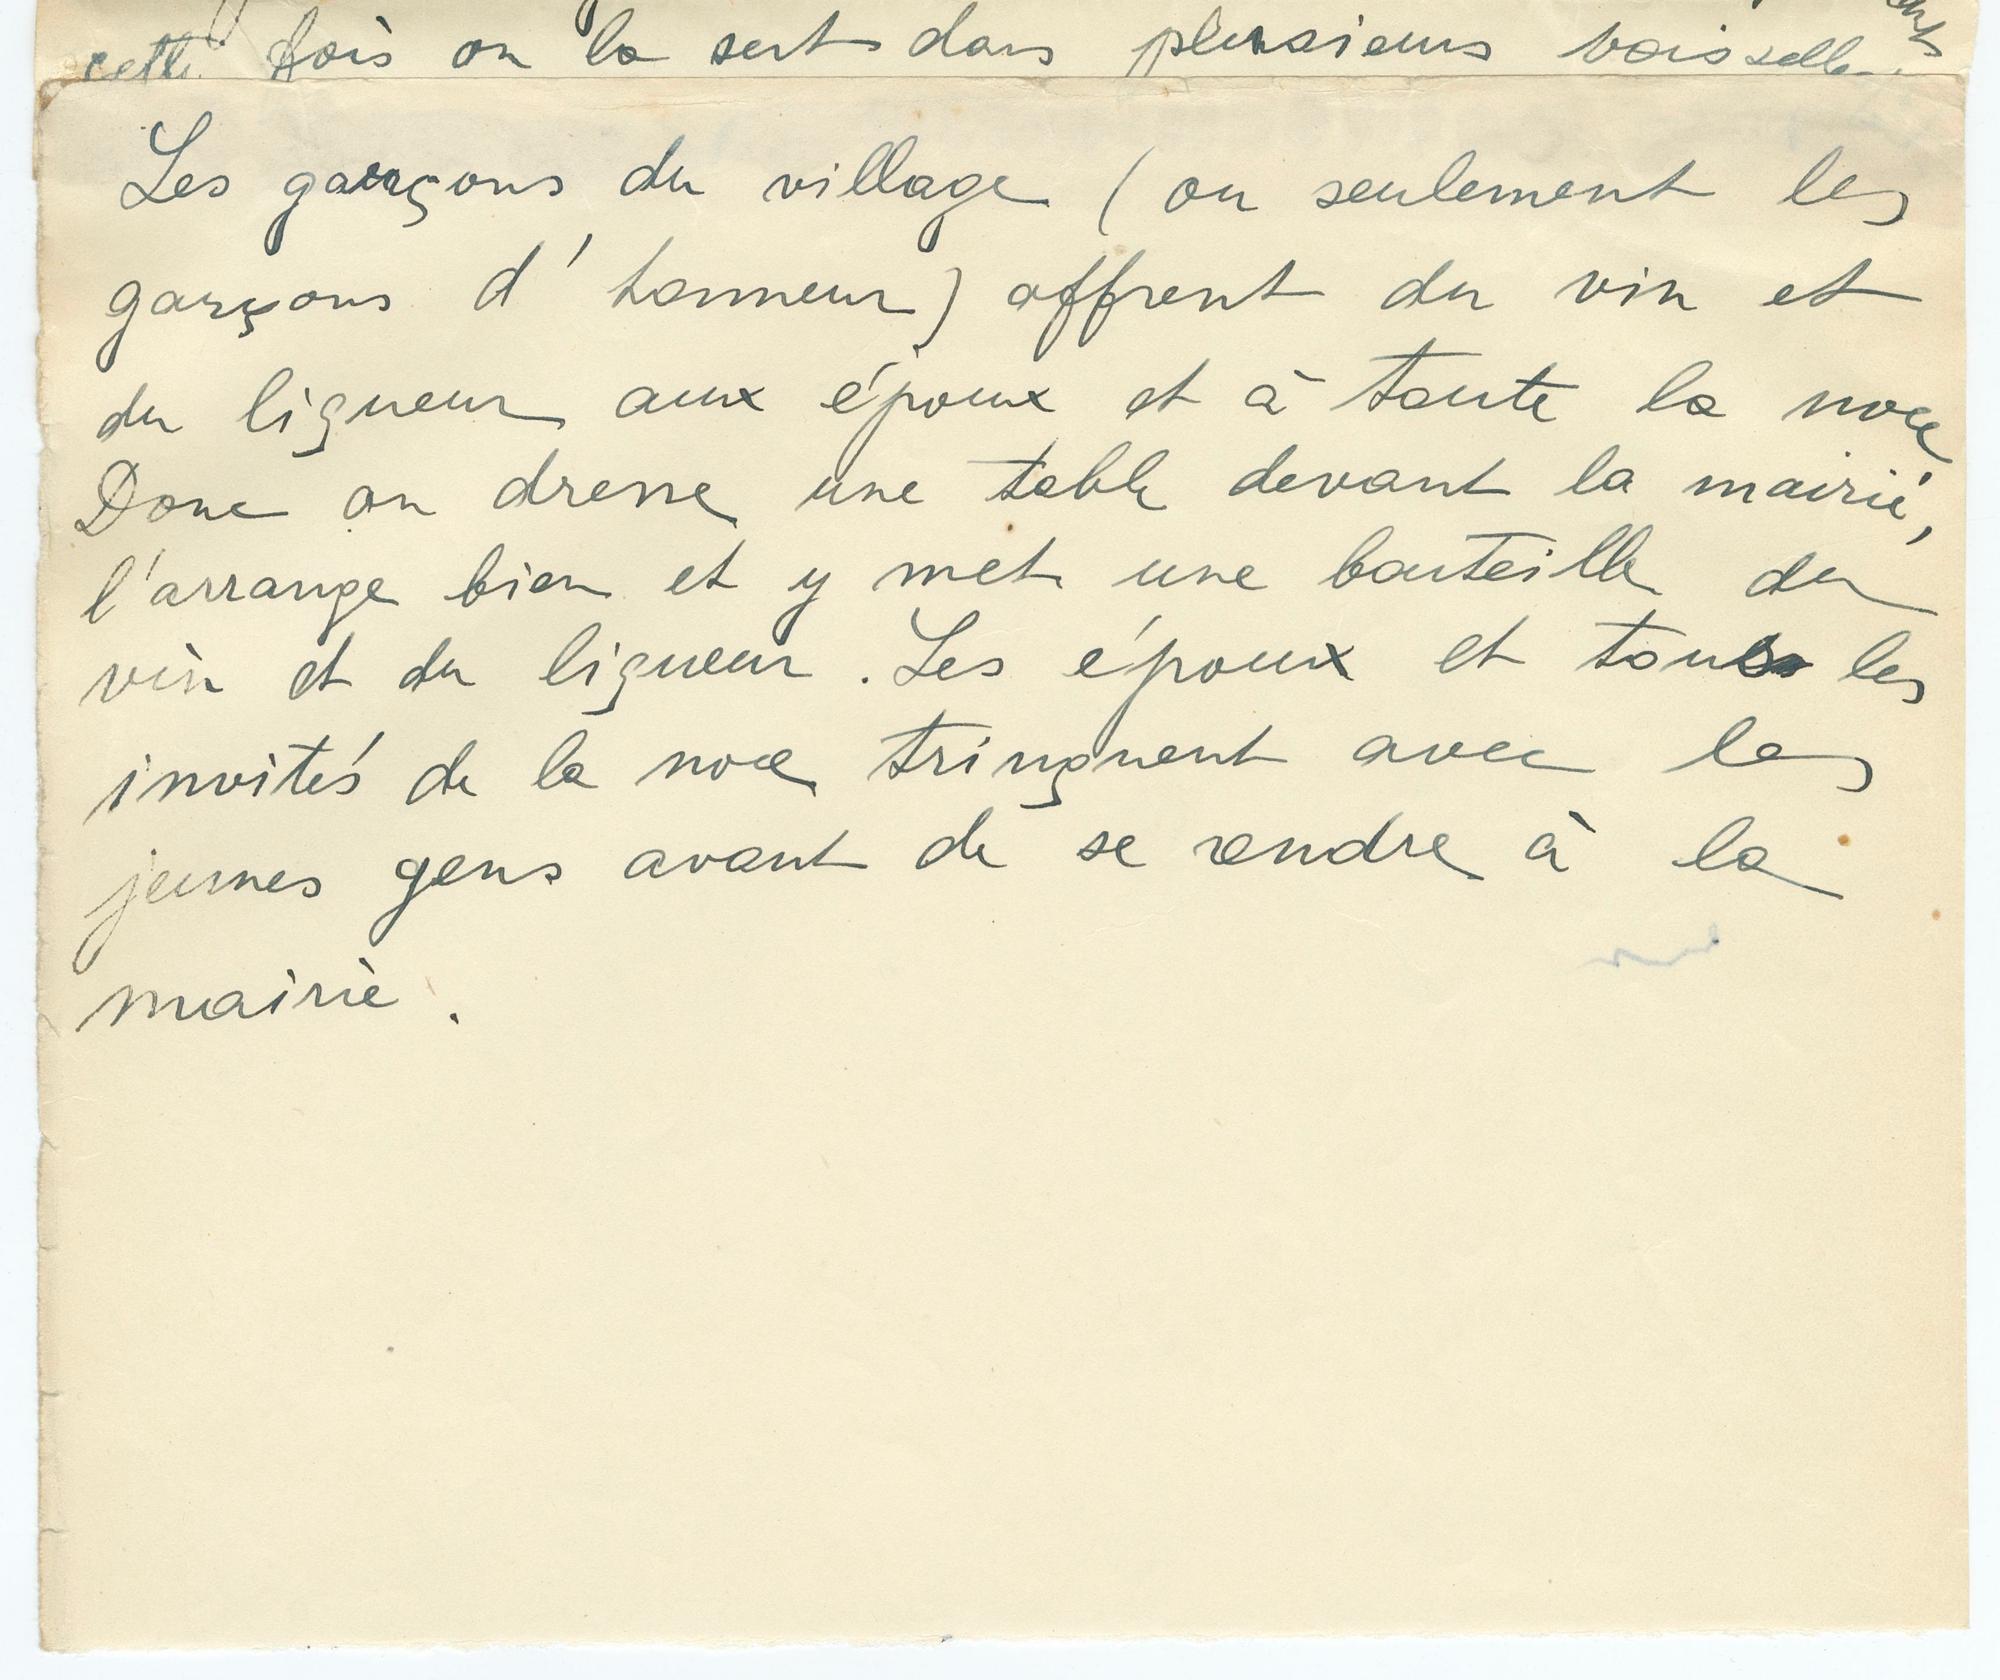 cette fois on la sert dans plusieurs vaisselle
Les garçons du village (ou seulement les
garçons d'honneur) offrent du vin et
du liqueur aux époux et à toute la noce
Donc on dresse une table devant la mairie,
l'arrange bien et y met une bouteille du
vin et du liqueur. Les époux et tous les
invités de la noce trinquent avec les
jeunes gens avant de se rendre à la
mairie.